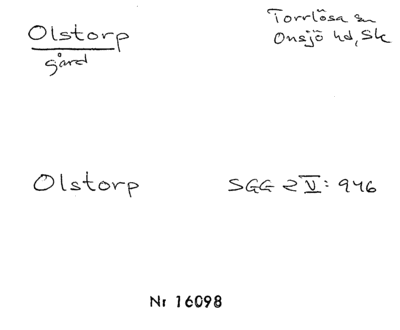 Olstorp
gård
Torrlösa sn
Onsjö hd, Sk
Olstorp
SGG 2 V: 946
Nr 16098